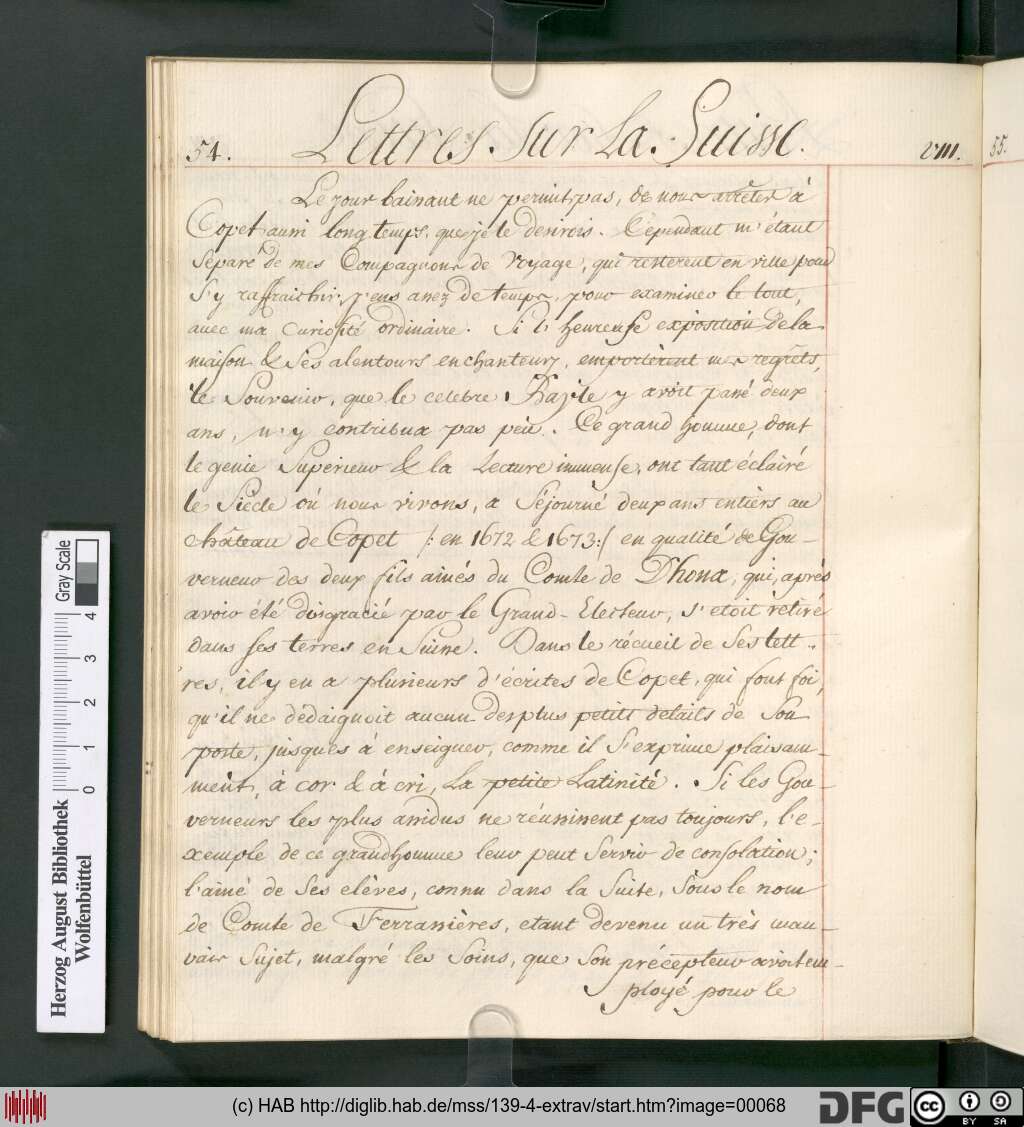 54. Lettres sur La Suisse. VIII. 55.
Le jour baissant ne permit pas, de nous arrêter à
Copet aussi long temps, que je le desirois. Cependant m'étant
separé de mes Compagnons de Voyage, qui resterent en ville pour
s'y raffraichir, j'eus assez de temps, pour examiner le tout,
avec ma curiosité ordinaire. Si l'heureuse exposition de la
maison & ses alentours enchanteurs, emportèrent mes regrêts,
le Souvenir, que le celebre Bayle y avoit passé deux
ans, n'y contribua pas peu. Ce grand homme, dont
le genie Supérieur & la Lecture immense, ont tant éclairé
le Siècle où nous vivons, a Séjourné deux ans entièrs au
château de Copet /: en 1672 & 1673:/ en qualité de Gou-
verneur des deux fils ainés du Comte de Dhona, qui, après
avoir été disgracié par le Grand-Electeur, s'etoit retiré
dans ses terres en Suisse. Dans le récueil de Ses lett-
res, il y en a plusieurs d'écrites de Copet, qui font foi,
qu'il ne dédaignoit aucun des plus petits details de Son
poste, jusques à enseigner, comme il S'exprime plaisam-
ment, à cor & à cri, La petite Latinité. Si les Gou-
verneurs les plus assidus ne réussissent pas toujours, l'e-
xemple de ce grand homme leur peut Servir de consolation;
l'ainé de Ses elèves, connu dans la Suite, Sous le nom
de Comte de Ferrassières, etant devenu un très mau-
vais Sujet, malgré les Soins, que Son précepteur avoit em-
ployé pour le
Gray Scale
4 3 2 1 0
Herzog August Bibliothek
Wolfenbüttel
(c) HAB http://diglib.hab.de/mss/139-4-extrav/start.htm?image=00068 DFG cc BY SA